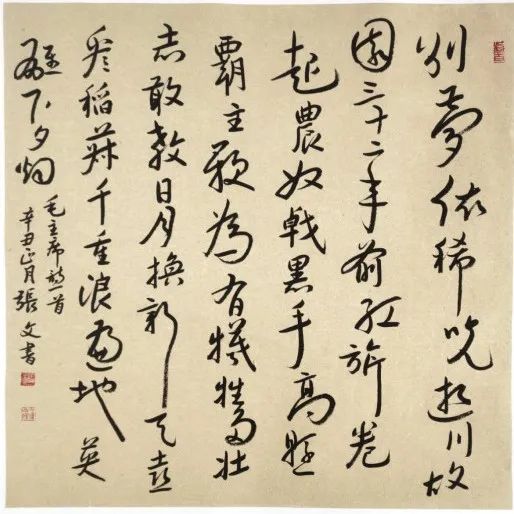 别夢依稀咒逝川故
園三十二年前紅旗卷
起農奴戟黑手高懸
霸主鞭為有犧牲多壯
志敢教日月換新天喜
看稻菽千重浪遍地英
雄下夕烟
毛主席詩一首
辛丑正月張文書